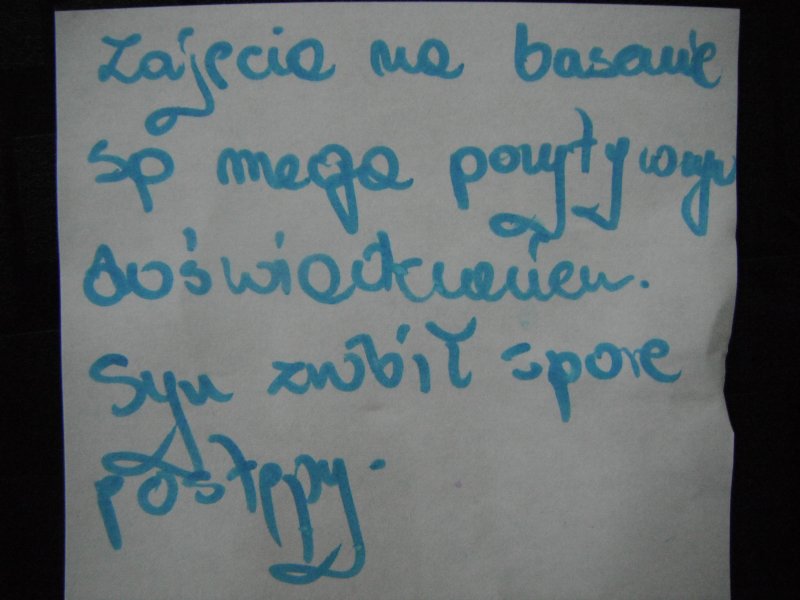 Zajęcia na basenie
są mega pozytywnym
doświadczeniem.
Syn zrobił spore
postępy.